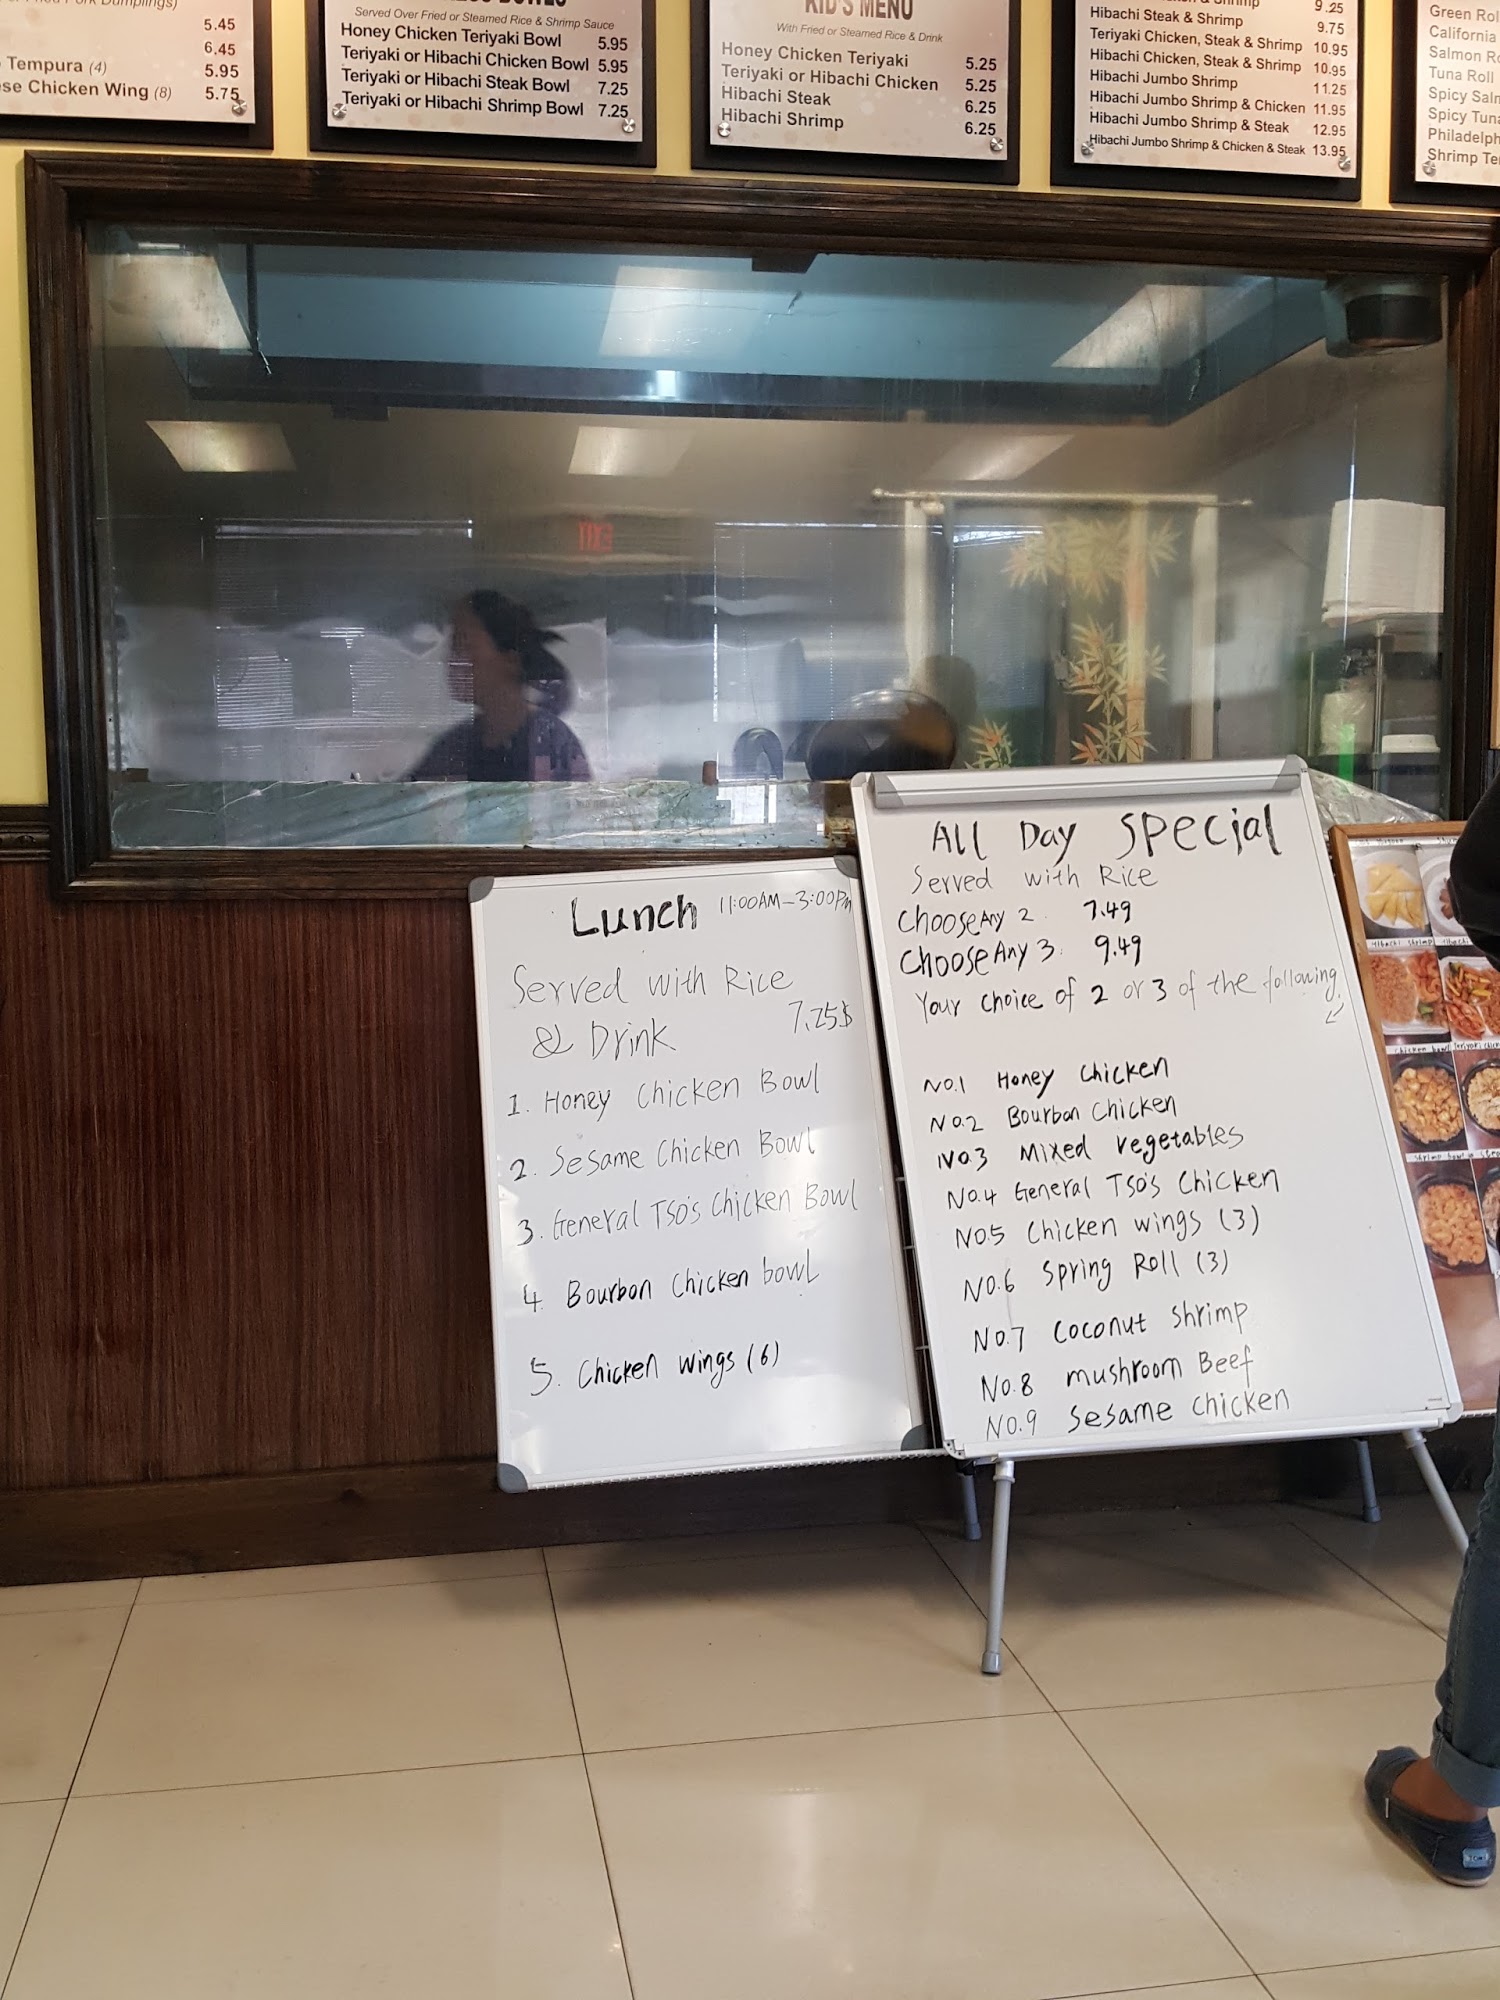 5.45
6.45
Tempura (4) 5.95
Chicken Wing (8) 5.75
Served Over Fried or Steamed Rice & Shrimp Sauce
Honey Chicken Teriyaki Bowl 5.95
Teriyaki or Hibachi Chicken Bowl 5.95
Teriyaki or Hibachi Steak Bowl 7.25
Teriyaki or Hibachi Shrimp Bowl 7.25
KID'S MENU
With Fried or Steamed Rice & Drink
Honey Chicken Teriyaki 5.25
Teriyaki or Hibachi Chicken 5.25
Hibachi Steak 6.25
Hibachi Shrimp 6.25
& Shrimp 9.25
Hibachi Steak & Shrimp 9.75
Teriyaki Chicken, Steak & Shrimp 10.95
Hibachi Chicken, Steak & Shrimp 10.95
Hibachi Jumbo Shrimp 11.25
Hibachi Jumbo Shrimp & Chicken 11.95
Hibachi Jumbo Shrimp & Steak 12.95
Hibachi Jumbo Shrimp & Chicken & Steak 13.95
Green
California
Salmon
Tuna Roll
Spicy
Spicy
Shrimp
Lunch 11:00AM-3:00PM
Served with Rice
& Drink 7.25$
1. Honey Chicken Bowl
2. Sesame Chicken Bowl
3. General TSO's Chicken Bowl
4 Bourbon Chicken bowl
5. Chicken wings (6)
All Day Special
Served with Rice
Choose Any 2 7.49
Choose Any 3 9.49
Your choice of 2 or 3 of the following
NO.1 Honey Chicken
NO.2 Bourbon Chicken
NO.3 Mixed vegetables
NO.4 General TSO's Chicken
NO.5 Chicken wings (3)
NO.6 Spring Roll (3)
NO.7 Coconut Shrimp
NO.8 mushroom Beef
NO.9 Sesame Chicken